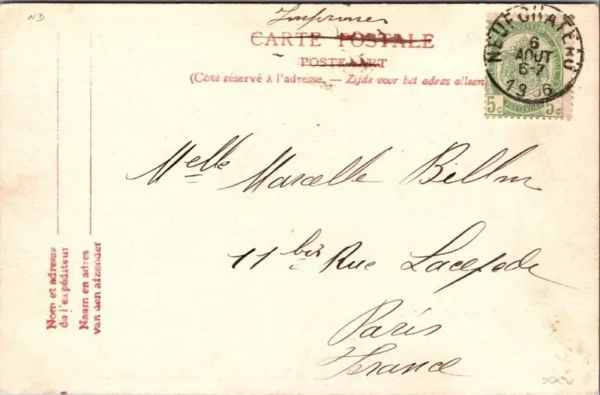 ND
Imprimés
CARTE POSTALE
POSTKAART
(Côté réservé à l'adresse. — Zijde voor het adres alleen
NEUFCHATEAU
6
AOUT
6-7
1906
5c 5c
Melle Marcelle
11 bis Rue Lacepede
Paris
France
Nom et adresse
de l'expéditeur
Naam en adres
van den afzender
XXV